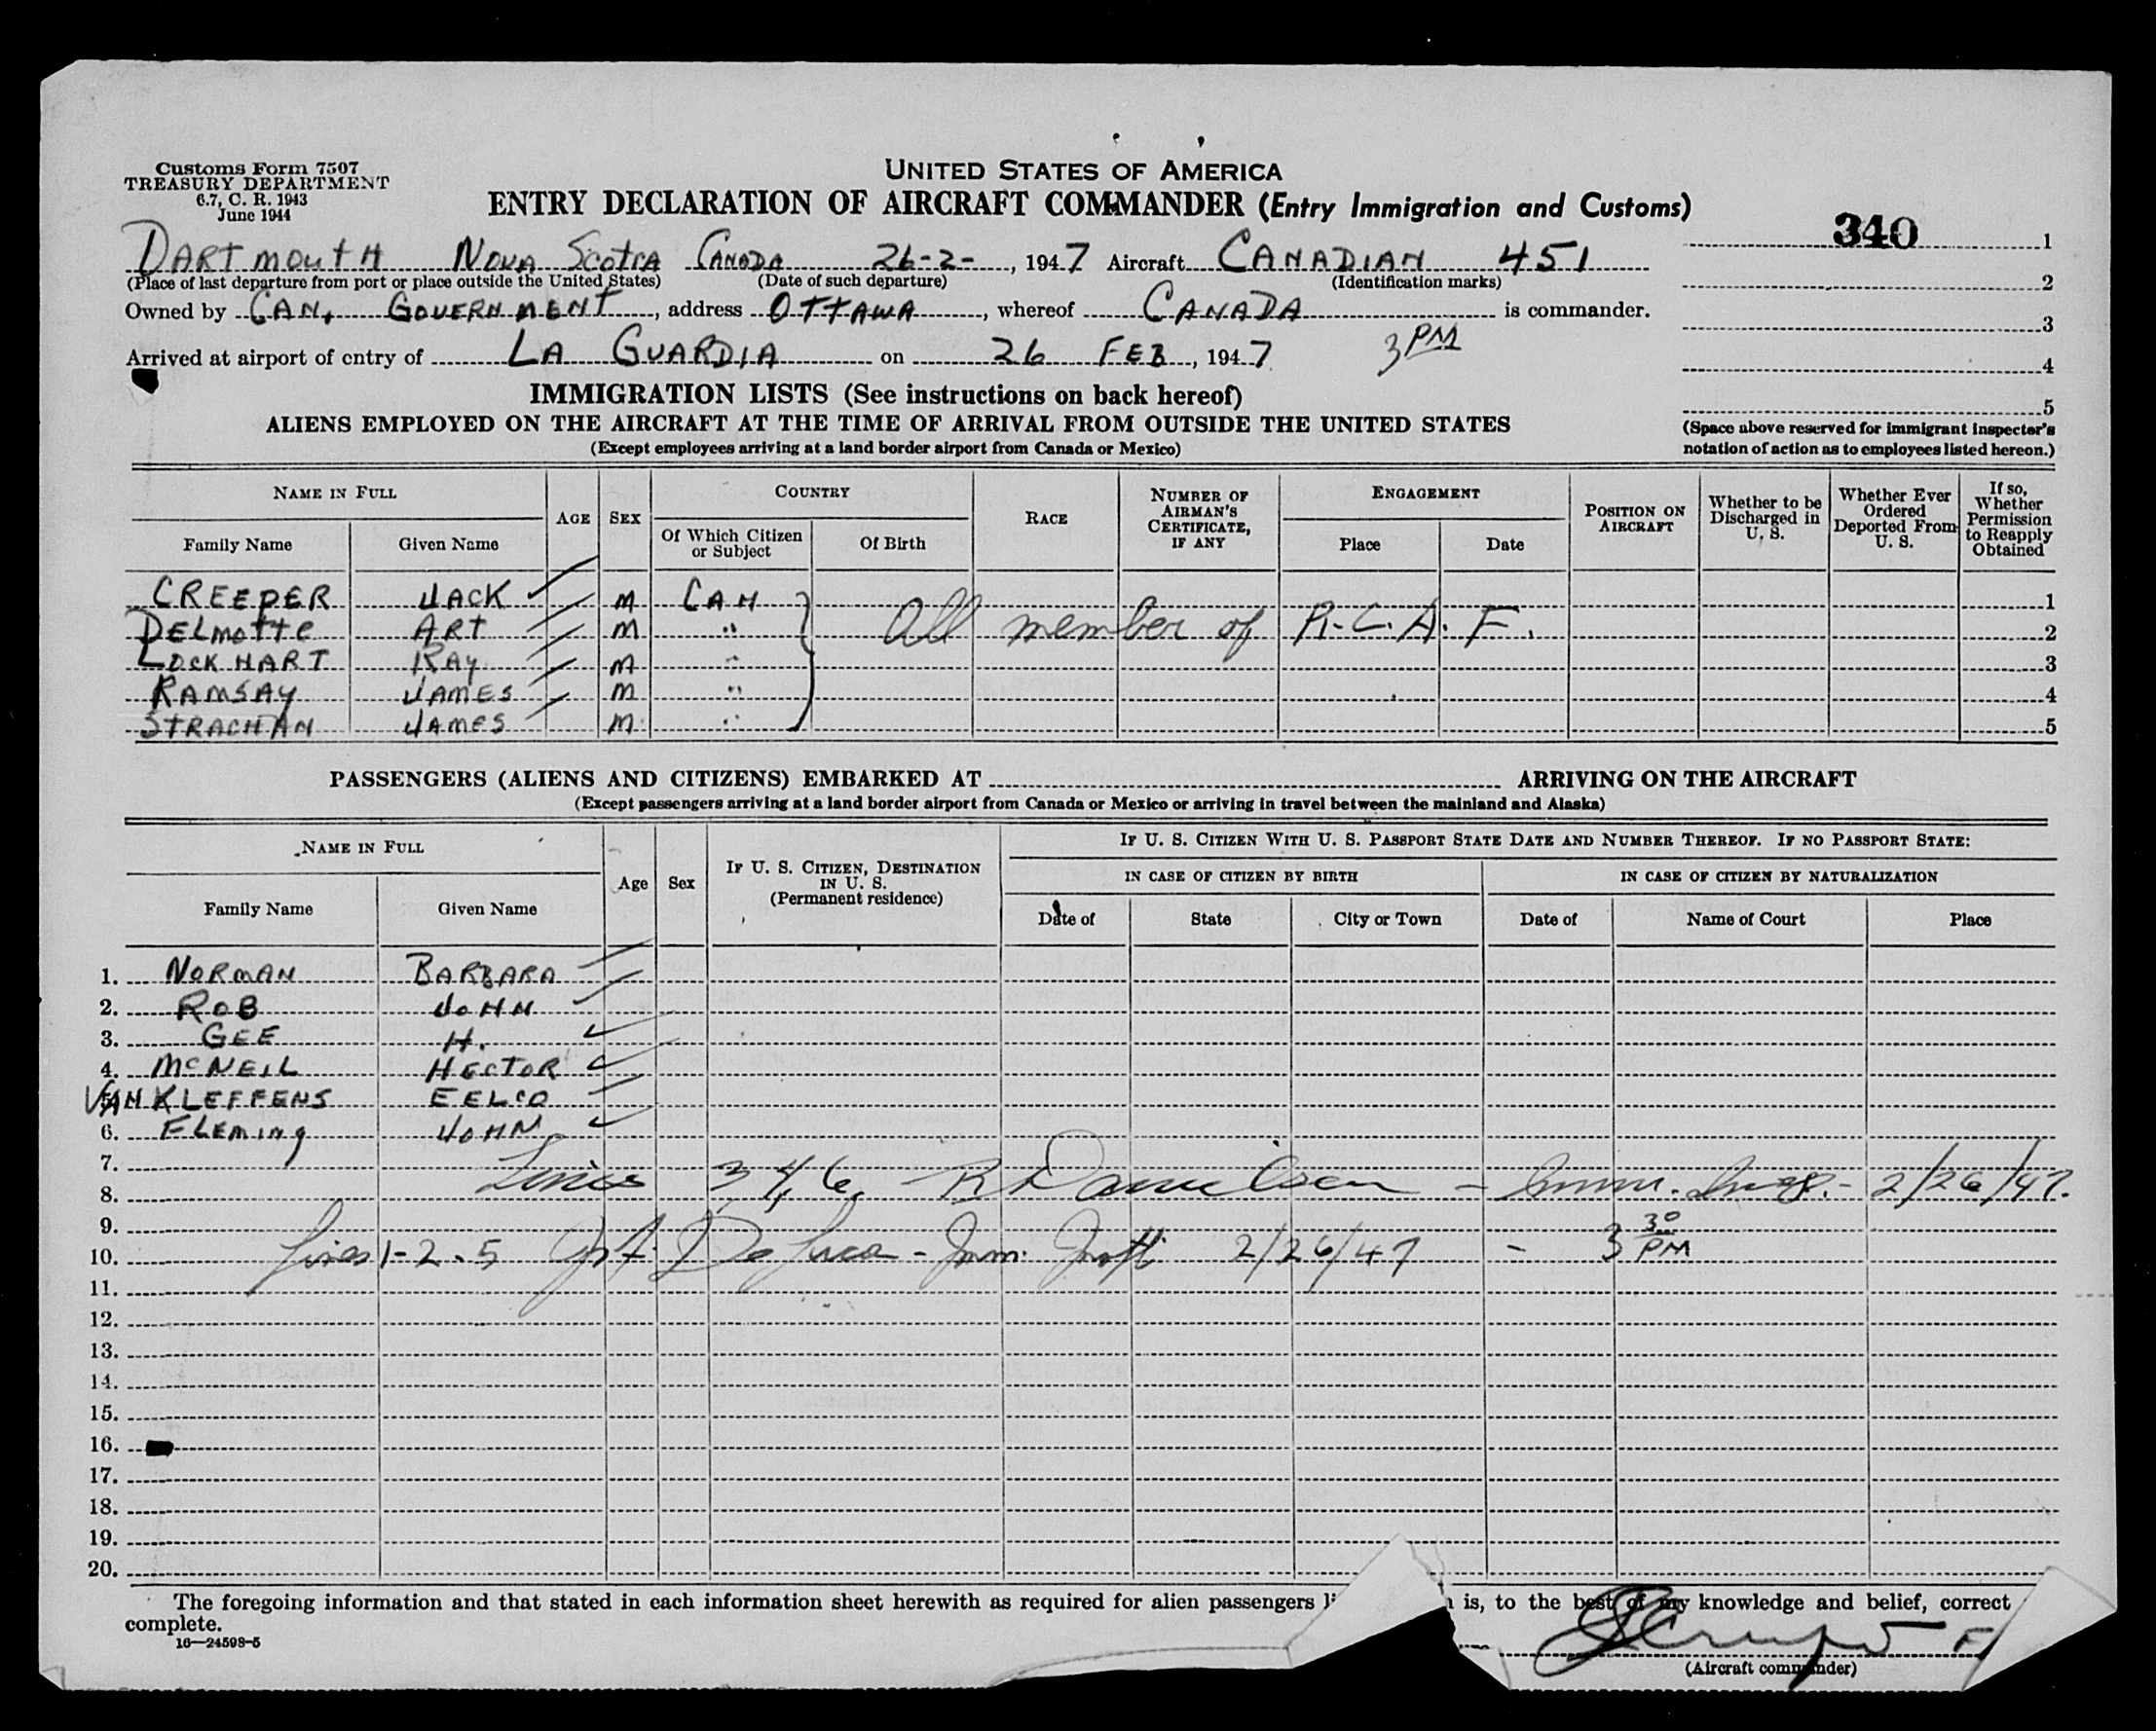 Customs Form 7507
TREASURY DEPARTMENT
6.7, C. R. 1943
June 1944
UNITED STATES OF AMERICA
ENTRY DECLARATION OF AIRCRAFT COMMANDER (Entry Immigration and Customs)
340 1
DARTMOUTH NOVA SCOTIA CANADA 26-2-, 1947 Aircraft CANADIAN 451
(Place of last departure from port or place outside the United States) (Date of such departure) (Identification marks)
2
Owned by CAN. GOVERNMENT, address OTTAWA, whereof CANADA is commander.
3
Arrived at airport of entry of LA GUARDIA on 26 FEB, 1947 3 PM
4
5
(Space above reserved for immigrant inspector's
notation of action as to employees listed hereon.)
IMMIGRATION LISTS (See instructions on back hereof)
ALIENS EMPLOYED ON THE AIRCRAFT AT THE TIME OF ARRIVAL FROM OUTSIDE THE UNITED STATES
(Except employees arriving at a land border airport from Canada or Mexico)
NAME IN FULL
Family Name
Given Name
AGE
SEX
COUNTRY
Of Which Citizen
or Subject
Of Birth
RACE
NUMBER OF
AIRMAN'S
CERTIFICATE,
IF ANY
ENGAGEMENT
Place
Date
POSITION ON
AIRCRAFT
Whether to be
Discharged in
U. S.
Whether Ever
Ordered
Deported From
U. S.
If so,
Whether
Permission
to Reapply
Obtained
CREEPER JACK M CAN 1
DELmotte ART M " All member of R.C.A.F. 2
LOCKHART RAY M " 3
RAMSAY JAMES M " 4
STRACHAN JAMES M " 5
PASSENGERS (ALIENS AND CITIZENS) EMBARKED AT ARRIVING ON THE AIRCRAFT
(Except passengers arriving at a land border airport from Canada or Mexico or arriving in travel between the mainland and Alaska)
NAME IN FULL
Family Name
Given Name
Age
Sex
IF U. S. CITIZEN, DESTINATION
IN U. S.
(Permanent residence)
IF U. S. CITIZEN WITH U. S. PASSPORT STATE DATE AND NUMBER THEREOF. IF NO PASSPORT STATE:
IN CASE OF CITIZEN BY BIRTH
Date of
State
City or Town
IN CASE OF CITIZEN BY NATURALIZATION
Date of
Name of Court
Place
1. NORMAN BARBARA
2. ROB JOHN
3. GEE H.
4. McNEIL HECTOR
5. VAN KLEFFENS EELCO
6. FLEMING JOHN
7.
8. Lines 3, 4, 6, R Danielsen - Imm. Insp. - 2/26/47.
9.
10. Lines 1-2-5 De Luca - Imm. 2/26/47 - 3 30 PM
11.
12.
13.
14.
15.
16.
17.
18.
19.
20.
The foregoing information and that stated in each information sheet herewith as required for alien passengers is, to the best of my knowledge and belief, correct
complete.
16—24598-5
(Aircraft commander)